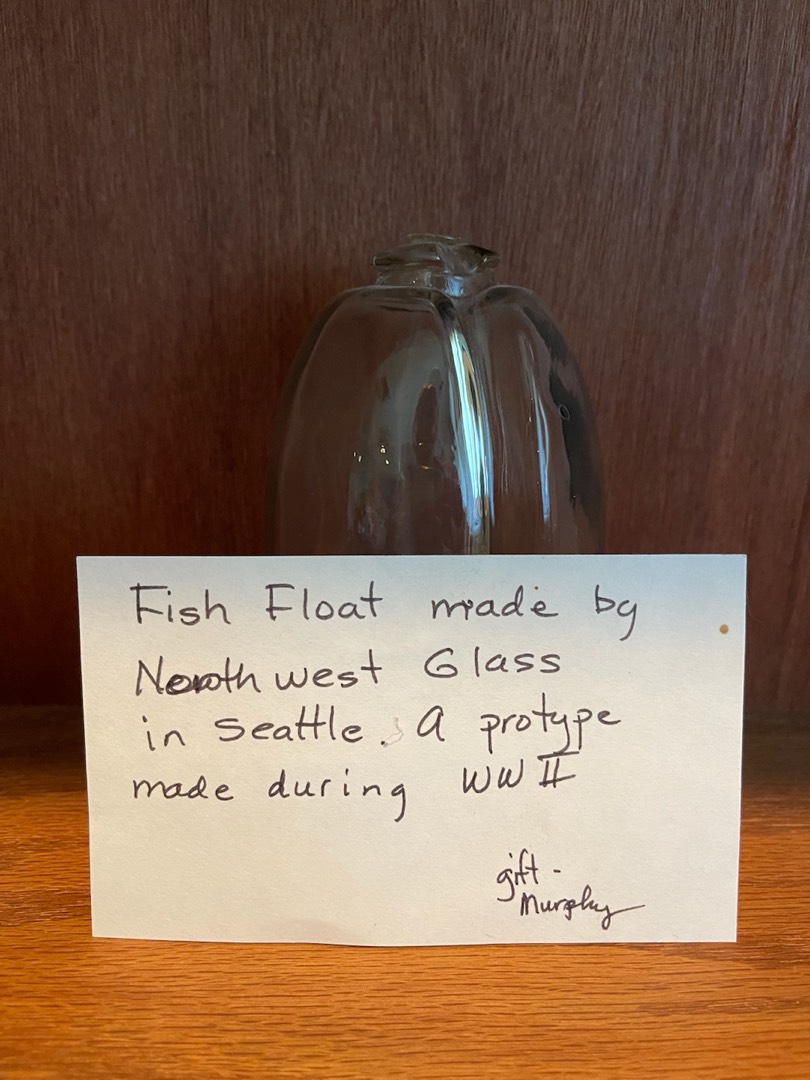 Fish Float made by
Northwest Glass
in Seattle. A protype
made during WW II
gift -
Murphy